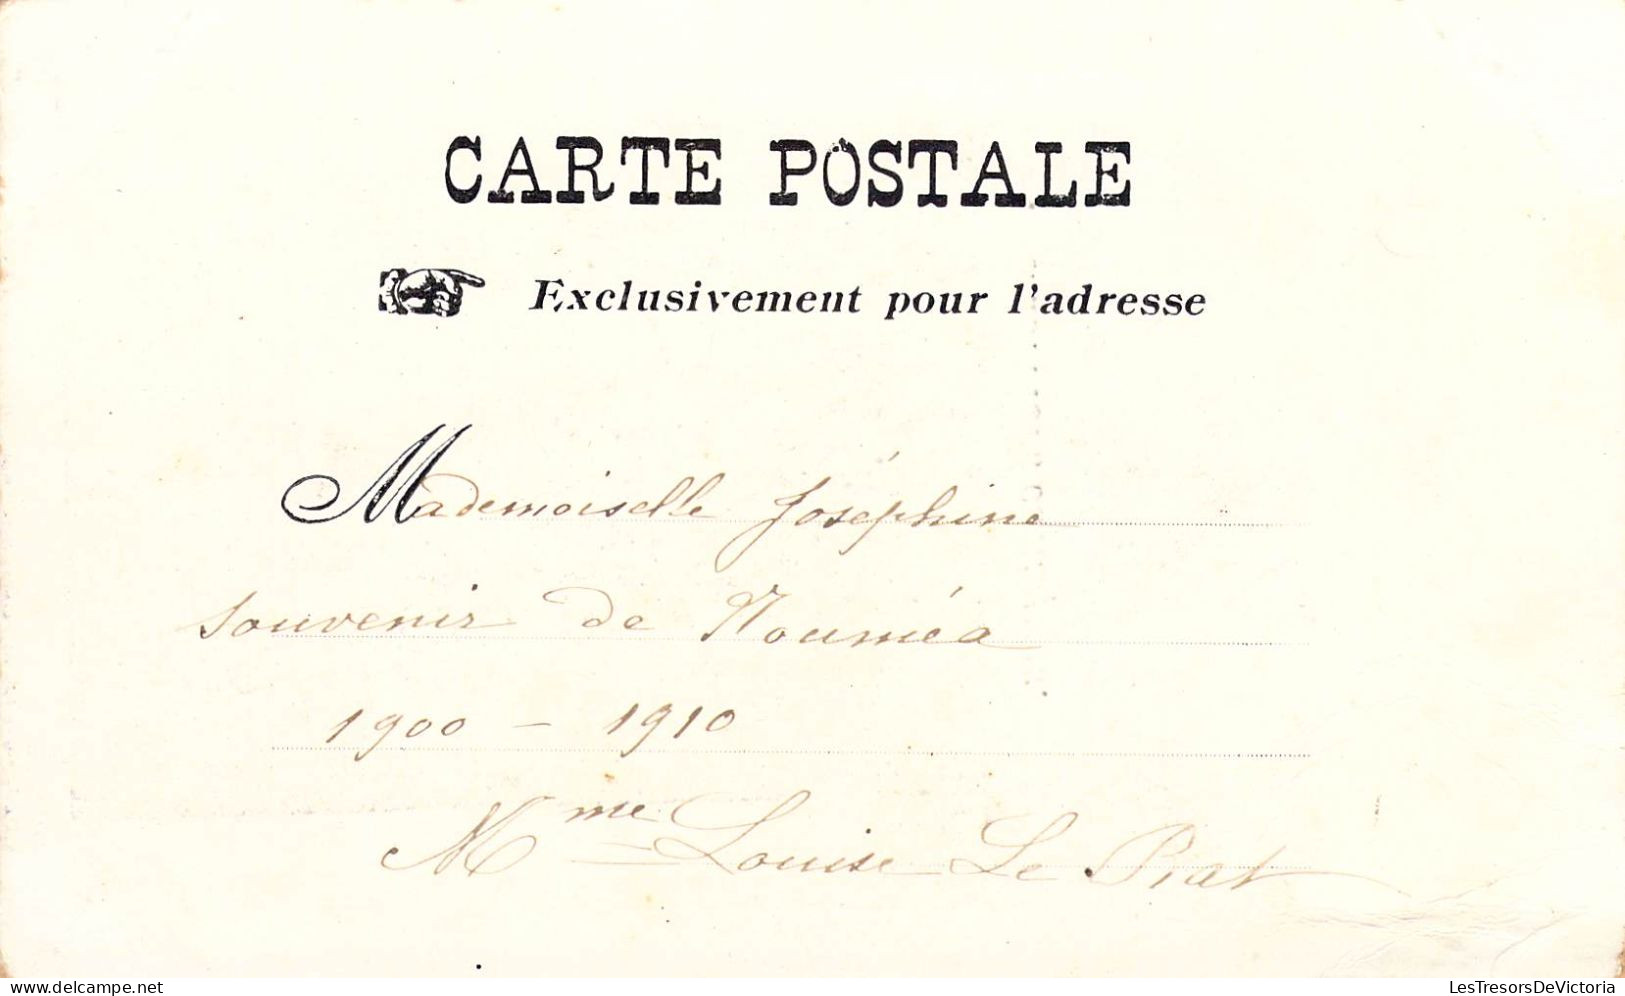 CARTE POSTALE
Exclusivement pour l'adresse
Mademoiselle Joséphine
souvenir de Nouméa
1900 - 1910
Mme Louise Le Prat
delcampe.net
LesTresorsDeVictoria